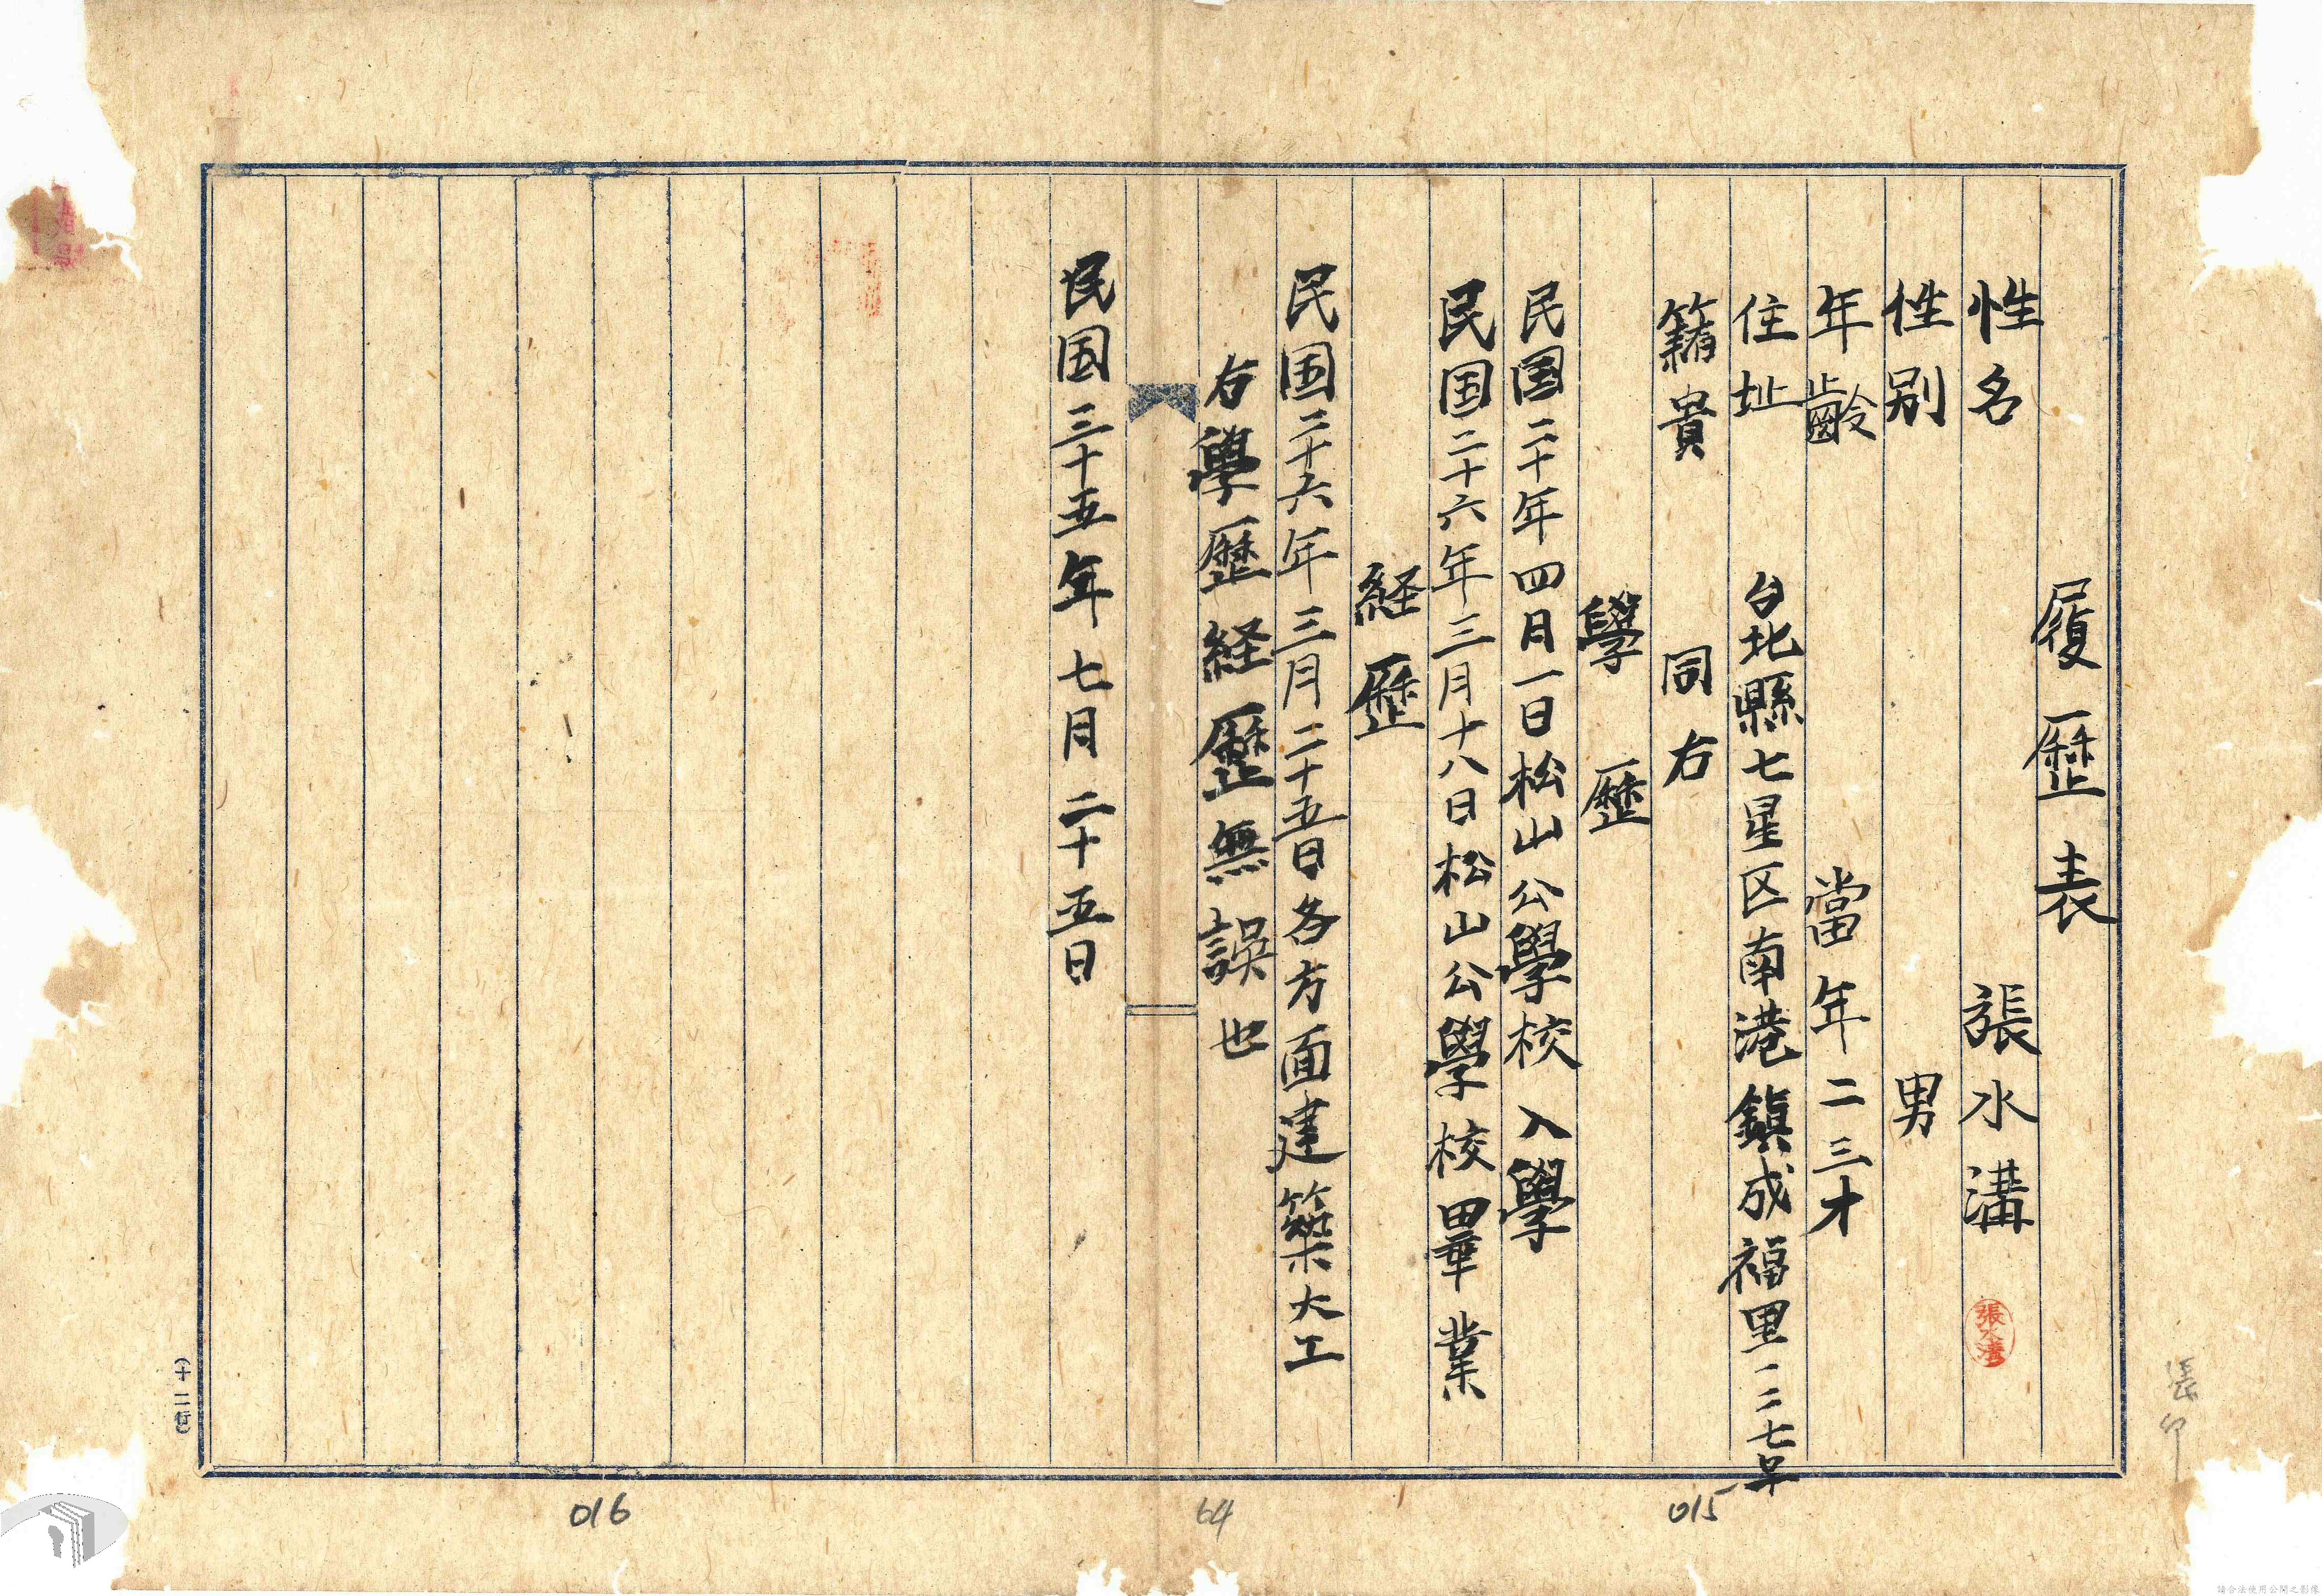 履歷表
性名 張水溝
張水溝
性別 男
年齡 當年二三才
住址 台北縣七星区南港鎮成福里一二七号
籍貴 同右
學歷
民国二十年四月一日松山公學校入學
民国二十六年三月十八日松山公學校畢業
経歷
民国二十六年三月二十五日各方面建築大工
右學歷経歷無誤也
民国三十五年七月二十五日
015
64
016
請合法使用公開之影像